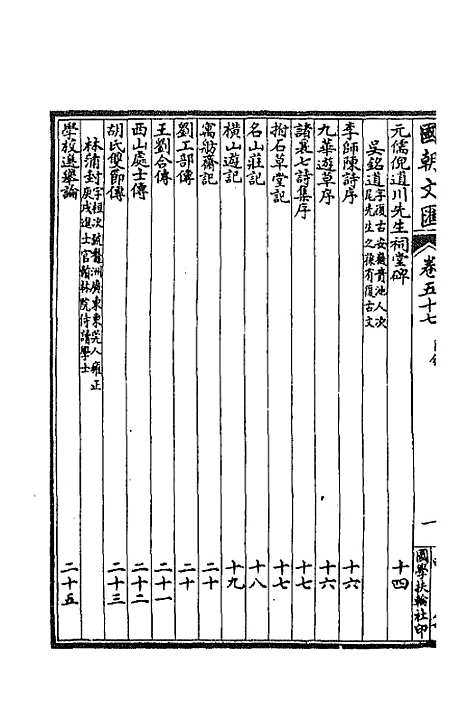 國朝文匯 卷五十七 一 國學扶輪社印
元儒倪道川先生祠堂碑 十四
吳銘道 字復古安徽貴池人次尾先生之孫有復古文
李師陳詩序 十六
九華遊草序 十六
諸襄七詩集序 十七
拊石草堂記 十七
名山莊記 十八
橫山遊記 十九
寓舫齋記 二十
劉工部傳 二十
王劉合傳 二十一
西山處士傳 二十二
胡氏雙節傳 二十三
林蒲封 字桓次號鼇洲廣東東莞人雍正庚戌進士官翰林院侍讀學士
學校選舉論 二十五